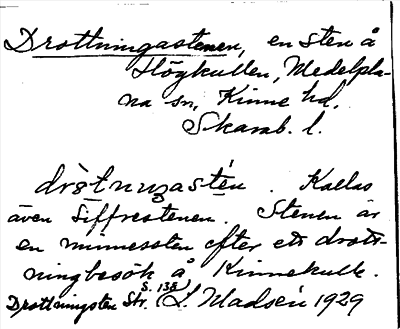 Drottningastenen, en sten å
Högkullen, Medelpla-
na sn, Kinne hd,
Skarab. l.
dròtnıŋgastén. Kallas
även Siffrestenen. Stenen är
en minnessten efter ett drott-
ningbesök å Kinnekulle.
S. 138
Drottningsten Skr. (L. Madsén 1929